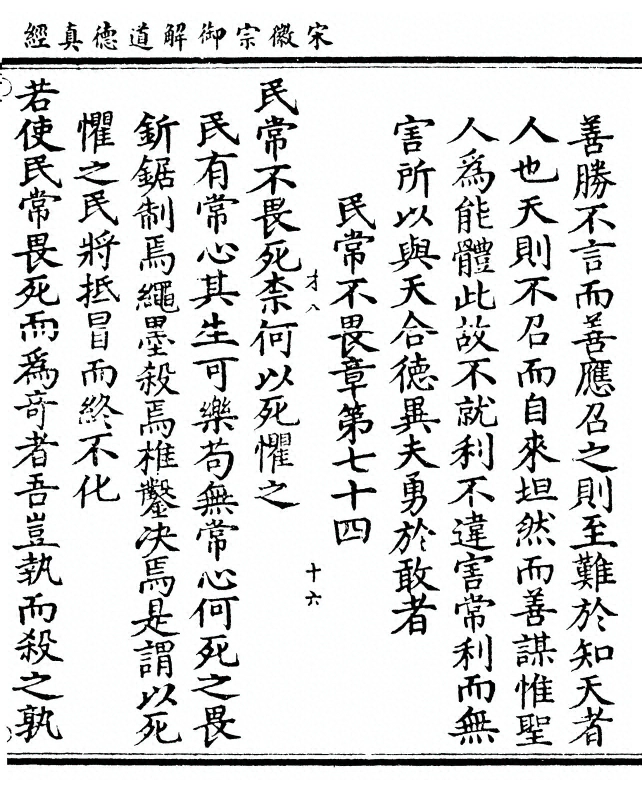 宋徽宗御解道德真經
善勝不言而善應召之則至難於知天者
人也天則不召而自來坦然而善謀惟聖
人爲能體此故不就利不違害常利而無
害所以與天合德異夫勇於敢者
民常不畏章第七十四
才八
十六
民常不畏死柰何以死懼之
民有常心其生可樂苟無常心何死之畏
釿鋸制焉繩墨殺焉椎鑿决焉是謂以死
懼之民將抵冒而終不化
若使民常畏死而爲奇者吾豈執而殺之孰